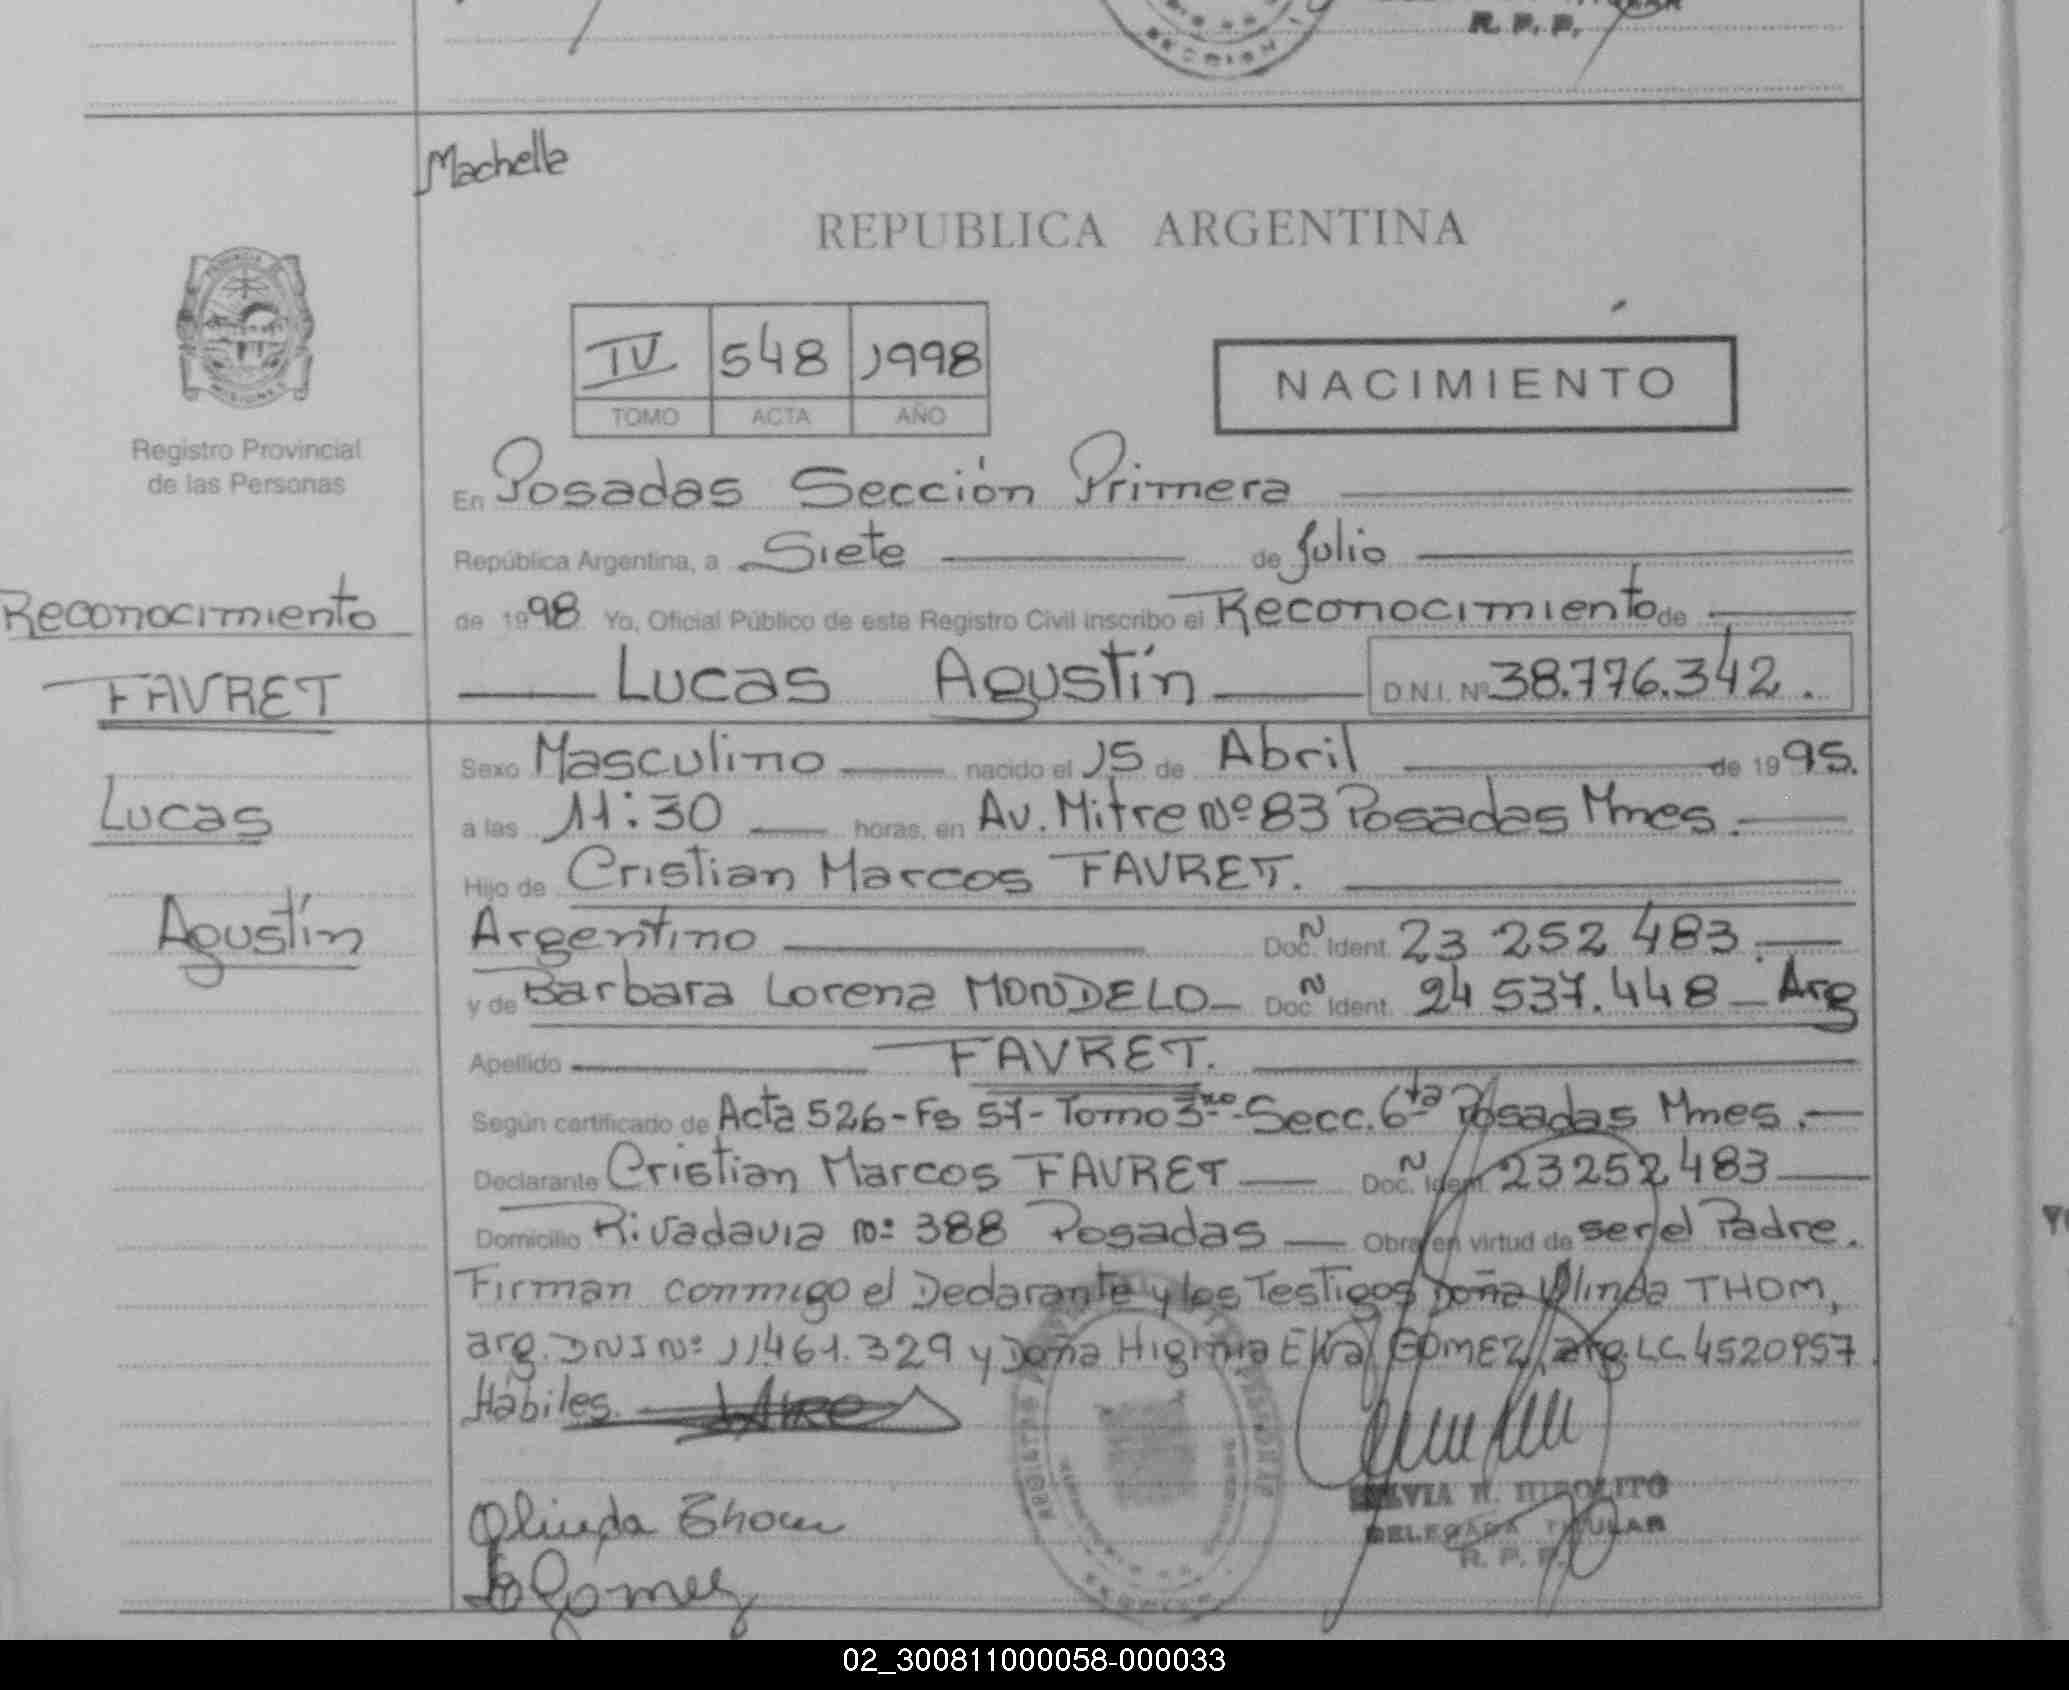 R. P. P.
SECCION
Machelle
REPUBLICA ARGENTINA
IV 548 1998
TOMO ACTA AÑO
NACIMIENTO
Registro Provincial
de las Personas
En Posadas Sección Primera
República Argentina, a Siete de Julio
Reconocimiento
de 1998 Yo, Oficial Público de este Registro Civil inscribo el Reconocimiento de
FAVRET
Lucas Agustín D.N.I. Nº 38.776.342.
Sexo Masculino nacido el 15 de Abril de 1995.
Lucas
a las 11:30 horas, en Av. Mitre Nº 83 Posadas Mnes.
Hijo de Cristian Marcos FAVRET.
Agustín
Argentino Doc. Ident. N 23 252 483.
y de Barbara Lorena MONDELO Doc. Ident. N 24 537.448 Arg
Apellido FAVRET.
Según certificado de Acta 526-Fs 57-Tomo 3ro-Secc. 6ta Posadas Mnes.
Declarante Cristian Marcos FAVRET Doc. Ident. N 23252483
Domicilio Rivadavia nº 388 Posadas Obra en virtud de ser el Padre.
Firman conmigo el Declarante y los Testigos Doña Olinda THOM,
arg. DNI Nº 11.461.329 y Doña Higinia Elva GOMEZ, arg. LC 4520957.
Hábiles.
Olinda Thom
Gomez
SILVIA N. HIPOLITO
DELEGADA TITULAR
R. P. P.
02_300811000058-000033